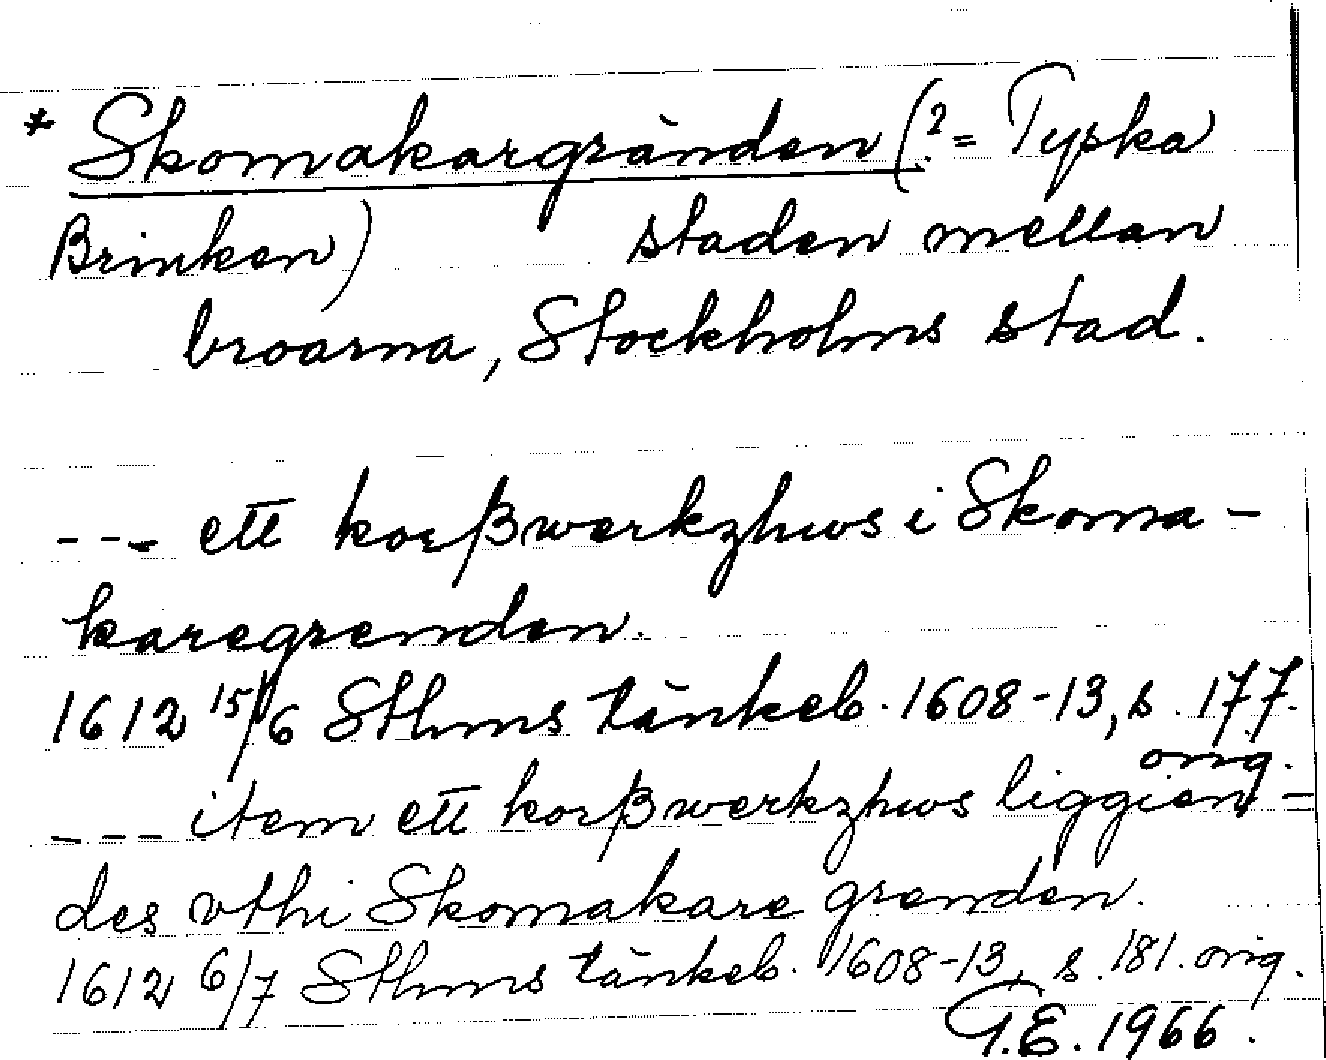 * Skomakargränden (? = Tyska
Brinken) staden mellan
broarna, Stockholms stad.
--- ett korßwerkzhws i Skoma-
karegrenden.
1612 15/6 Sthms tänkeb. 1608-13, s. 177.
orig.
--- item ett korßwerkzhws liggien-
des vthi Skomakare grenden.
1612 6/7 Sthms tänkeb. 1608-13, s. 181. orig.
G.E. 1966.